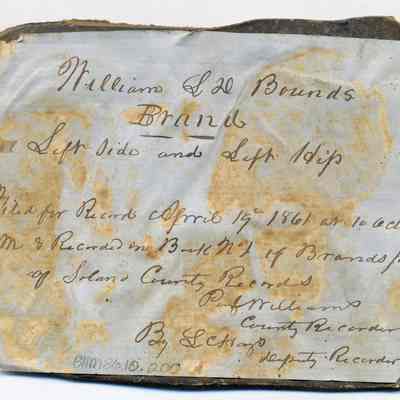 William S D Bounds
Brand
Left Side and Left Hip
Filed for Record April 19th 1861 at 10 Ocl
M & Recorded in Book No 1 of Brands
of Solano County Records
Williams
County Recorder
By
Deputy Recorder